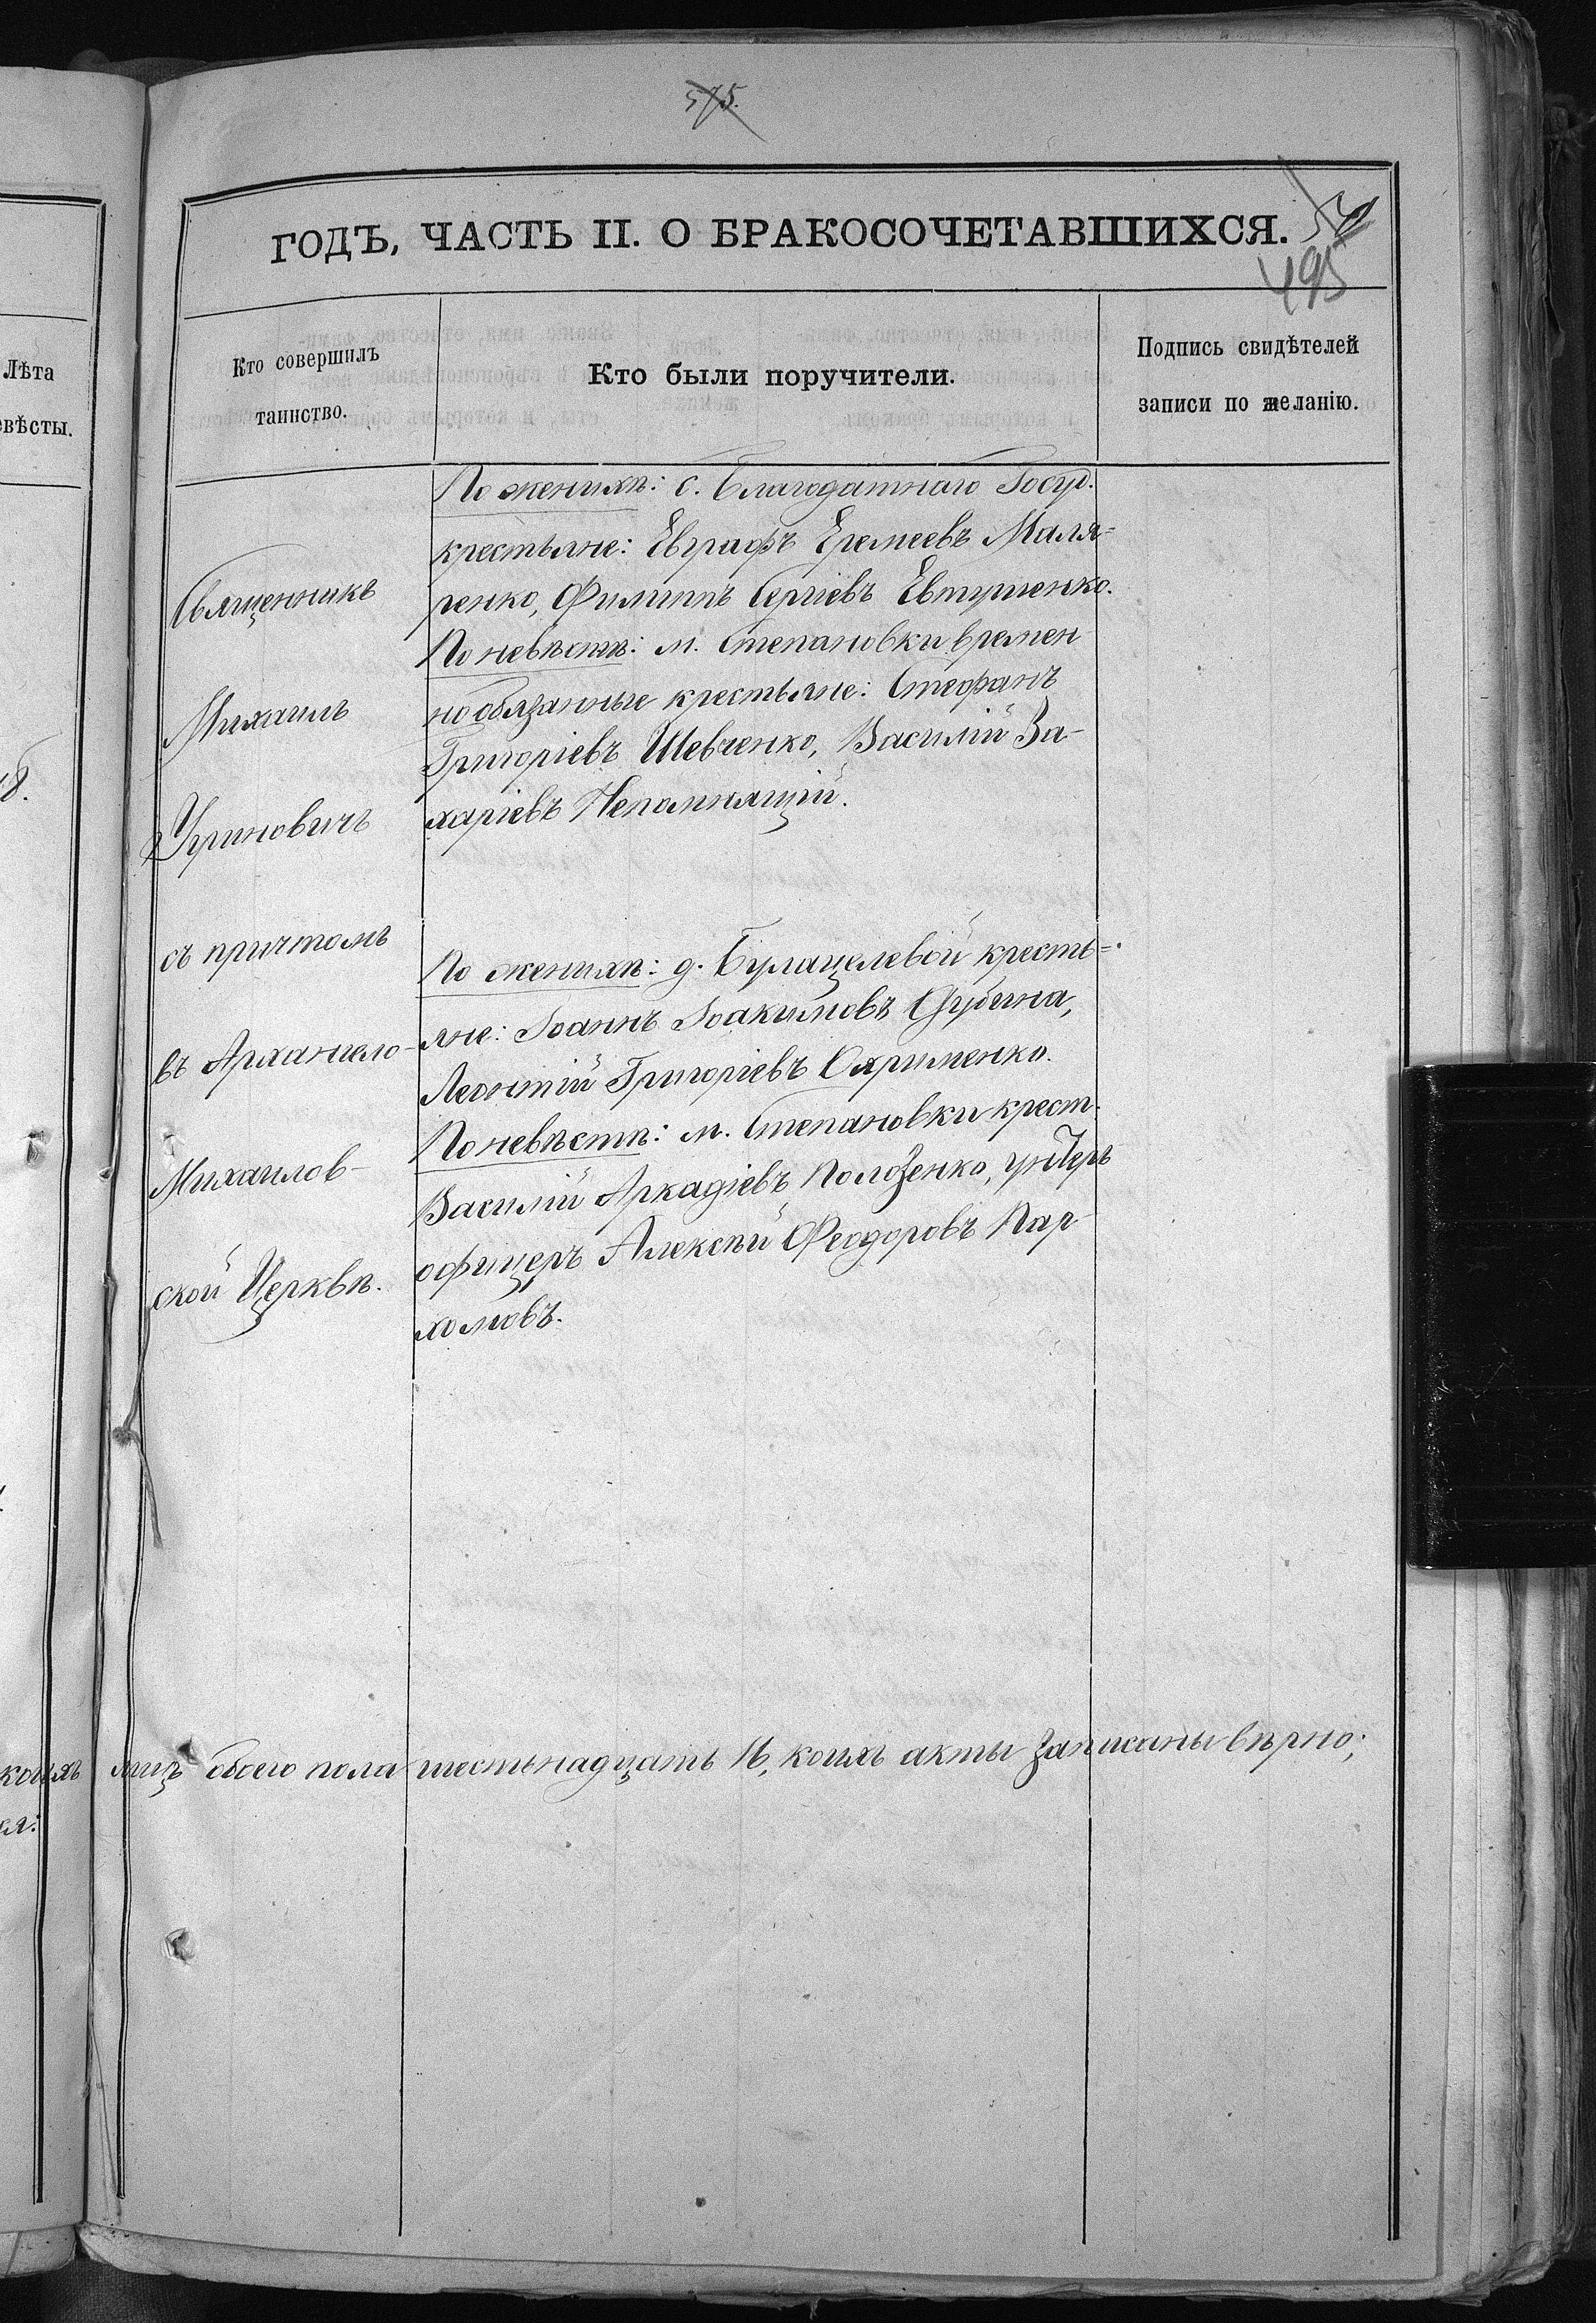 575.
ГОДЪ, ЧАСТЬ II. О БРАКОСОЧЕТАВШИХСЯ.
495
Лѣта
евѣсты.
Кто совершилъ
таинство.
Кто были поручители.
Подпись свидѣтелей
записи по желанію.
Священникъ
Михаилъ
Угриновичъ
съ причтомъ
въ Архангело-
Михаилов-
ской Церквѣ.
По женихѣ: с. Благодатнаго Госуд.
крестьяне: Евграфъ Еремеевъ Маля-
ренко, Филиппъ Сергіевъ Евтушенко.
По невѣстѣ: м. Степановки времен
нообязанные крестьяне: Стефанъ
Григоріевъ Шевченко, Василій За-
харіевъ Непомнящій.
По женихѣ: д. Булацелевой кресть-
яне: Іоаннъ Іоакимовъ Дубина,
Леонтій Григоріевъ Охрименко.
По невѣстѣ: м. Степановки крест.
Василій Аркадіевъ Полозенко, унтеръ
офицеръ Алексѣй Феодоровъ Пар-
хомовъ.
коихъ лицъ обоего пола шестьнадцать 16, коихъ акты записаны вѣрно;
ся: